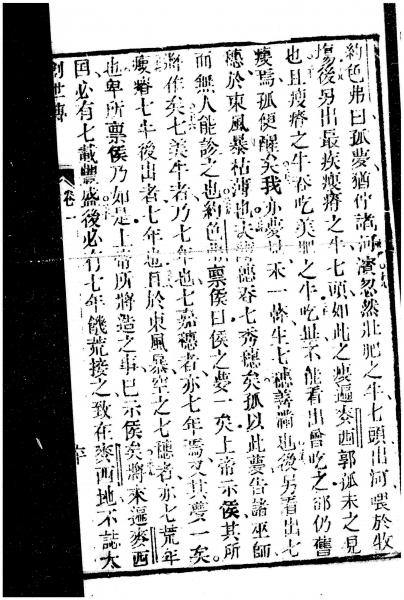 約色弗曰孤夢猶伫諸河濱忽然壯肥之牛七頭出河喂於牧
塲後另出最疾瘦瘠之牛七頭如此之瘦遍麥西郭孤未之見
也且瘦瘠之牛吞吃美肥之牛吃並不能看出曾吃之卽仍舊
瘦焉孤便醒矣我亦夢見來一榦生七穗善滿也後另看出七
穗於東風暴枯薄也穗吞七秀穗矣孤以此夢告諸巫師
而無人能診之也約色弗禀侯曰侯之夢一矣上帝示侯其所
將作矣七美牛者乃七年也七嘉穗者亦七年焉又其夢一矣
瘦瘠七牛後出者七年也且於東風暴空之七穗者亦七荒年
也卑所禀侯乃如是上帝所將造之事已示侯矣將來遍麥西
囯必有七載豐盛後必有七年饑荒接之致在麥西地不誌大
創世傳 卷一